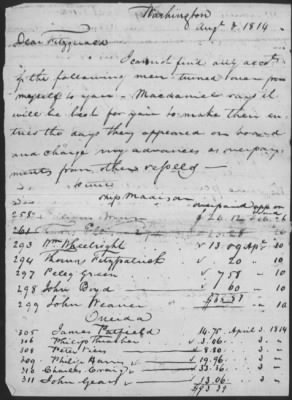 Washington
Augt 8. 1814
Dear Fitzgerald
I cannot find any acct
of the following men turned over from
myself to you. Machaniel says it
will be best for you to make their en-
tries the day they appeared on board
and charge my advances as overpay-
ments from other vessels —
Ship Madison
overpaid app on
258
261
293 Wm Wheelright 13.09 Apl 30
294 Thomas Fitzpatrick 20 10
297 Peleg Green 7.58 10
298 John Boyd 60 10
299 John Weaner
Oneida
305 James Patfield 14.75 April 3. 1814
306 Philip Thrasher 3.06 3
308 Peter 8.80 3
309 Philip Harry 19.96 3
310 Charles Craig 33.36 3
311 John Gear 13.06 3
$93.39